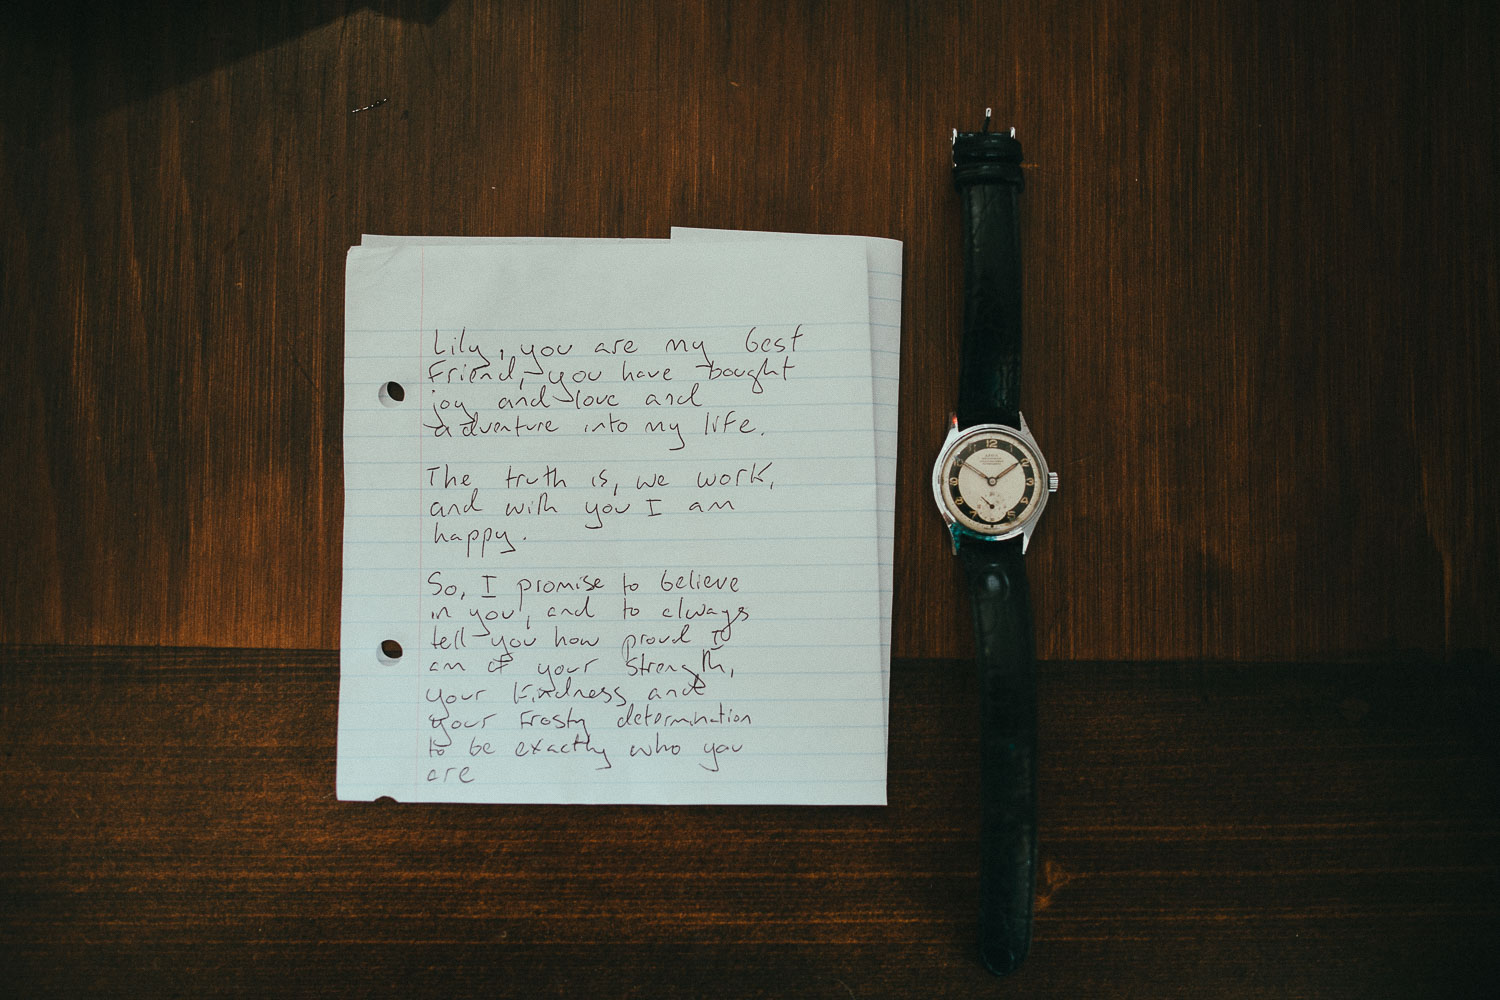 Lily, you are my best
friend, you have bought
joy and love and
adventure into my life.
The truth is, we work,
and with you I am
happy.
So, I promise to believe
in you, and to always
tell you how proud I
am of your strength,
your kindness and
your frosty determination
to be exactly who you
are
12